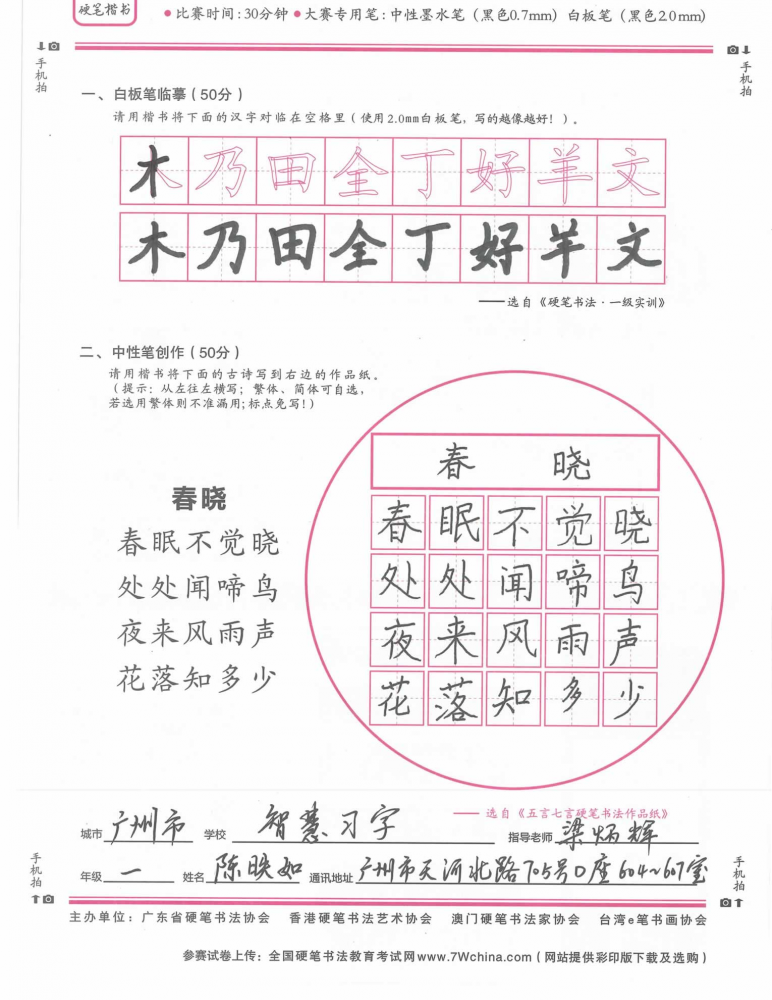 硬笔楷书
●比赛时间:30分钟 ●大赛专用笔:中性墨水笔（黑色0.7mm）白板笔（黑色2.0mm)
手机拍
手机拍
一、白板笔临摹（50分）
请用楷书将下面的汉字对临在空格里（使用2.0mm白板笔，写的越像越好！）。
木乃田全丁好羊文
木乃田全丁好羊文
——选自《硬笔书法·一级实训》
二、中性笔创作（50分）
请用楷书将下面的古诗写到右边的作品纸。
（提示：从左往左横写；繁体、简体可自选，
若选用繁体则不准漏用;标点免写!）
春晓
春眠不觉晓
处处闻啼鸟
夜来风雨声
花落知多少
春 晓
春眠不觉晓
处处闻啼鸟
夜来风雨声
花落知多少
——选自《五言七言硬笔书法作品纸》
城市 广州市 学校 智慧习字 指导老师 梁炳辉
年级 一 姓名 陈映如 通讯地址 广州市天河北路705号D座604~607室
手机拍
手机拍
主办单位：广东省硬笔书法协会 香港硬笔书法艺术协会 澳门硬笔书法家协会 台湾e笔书画协会
参赛试卷上传：全国硬笔书法教育考试网www.7Wchina.com（网站提供彩印版下载及选购）